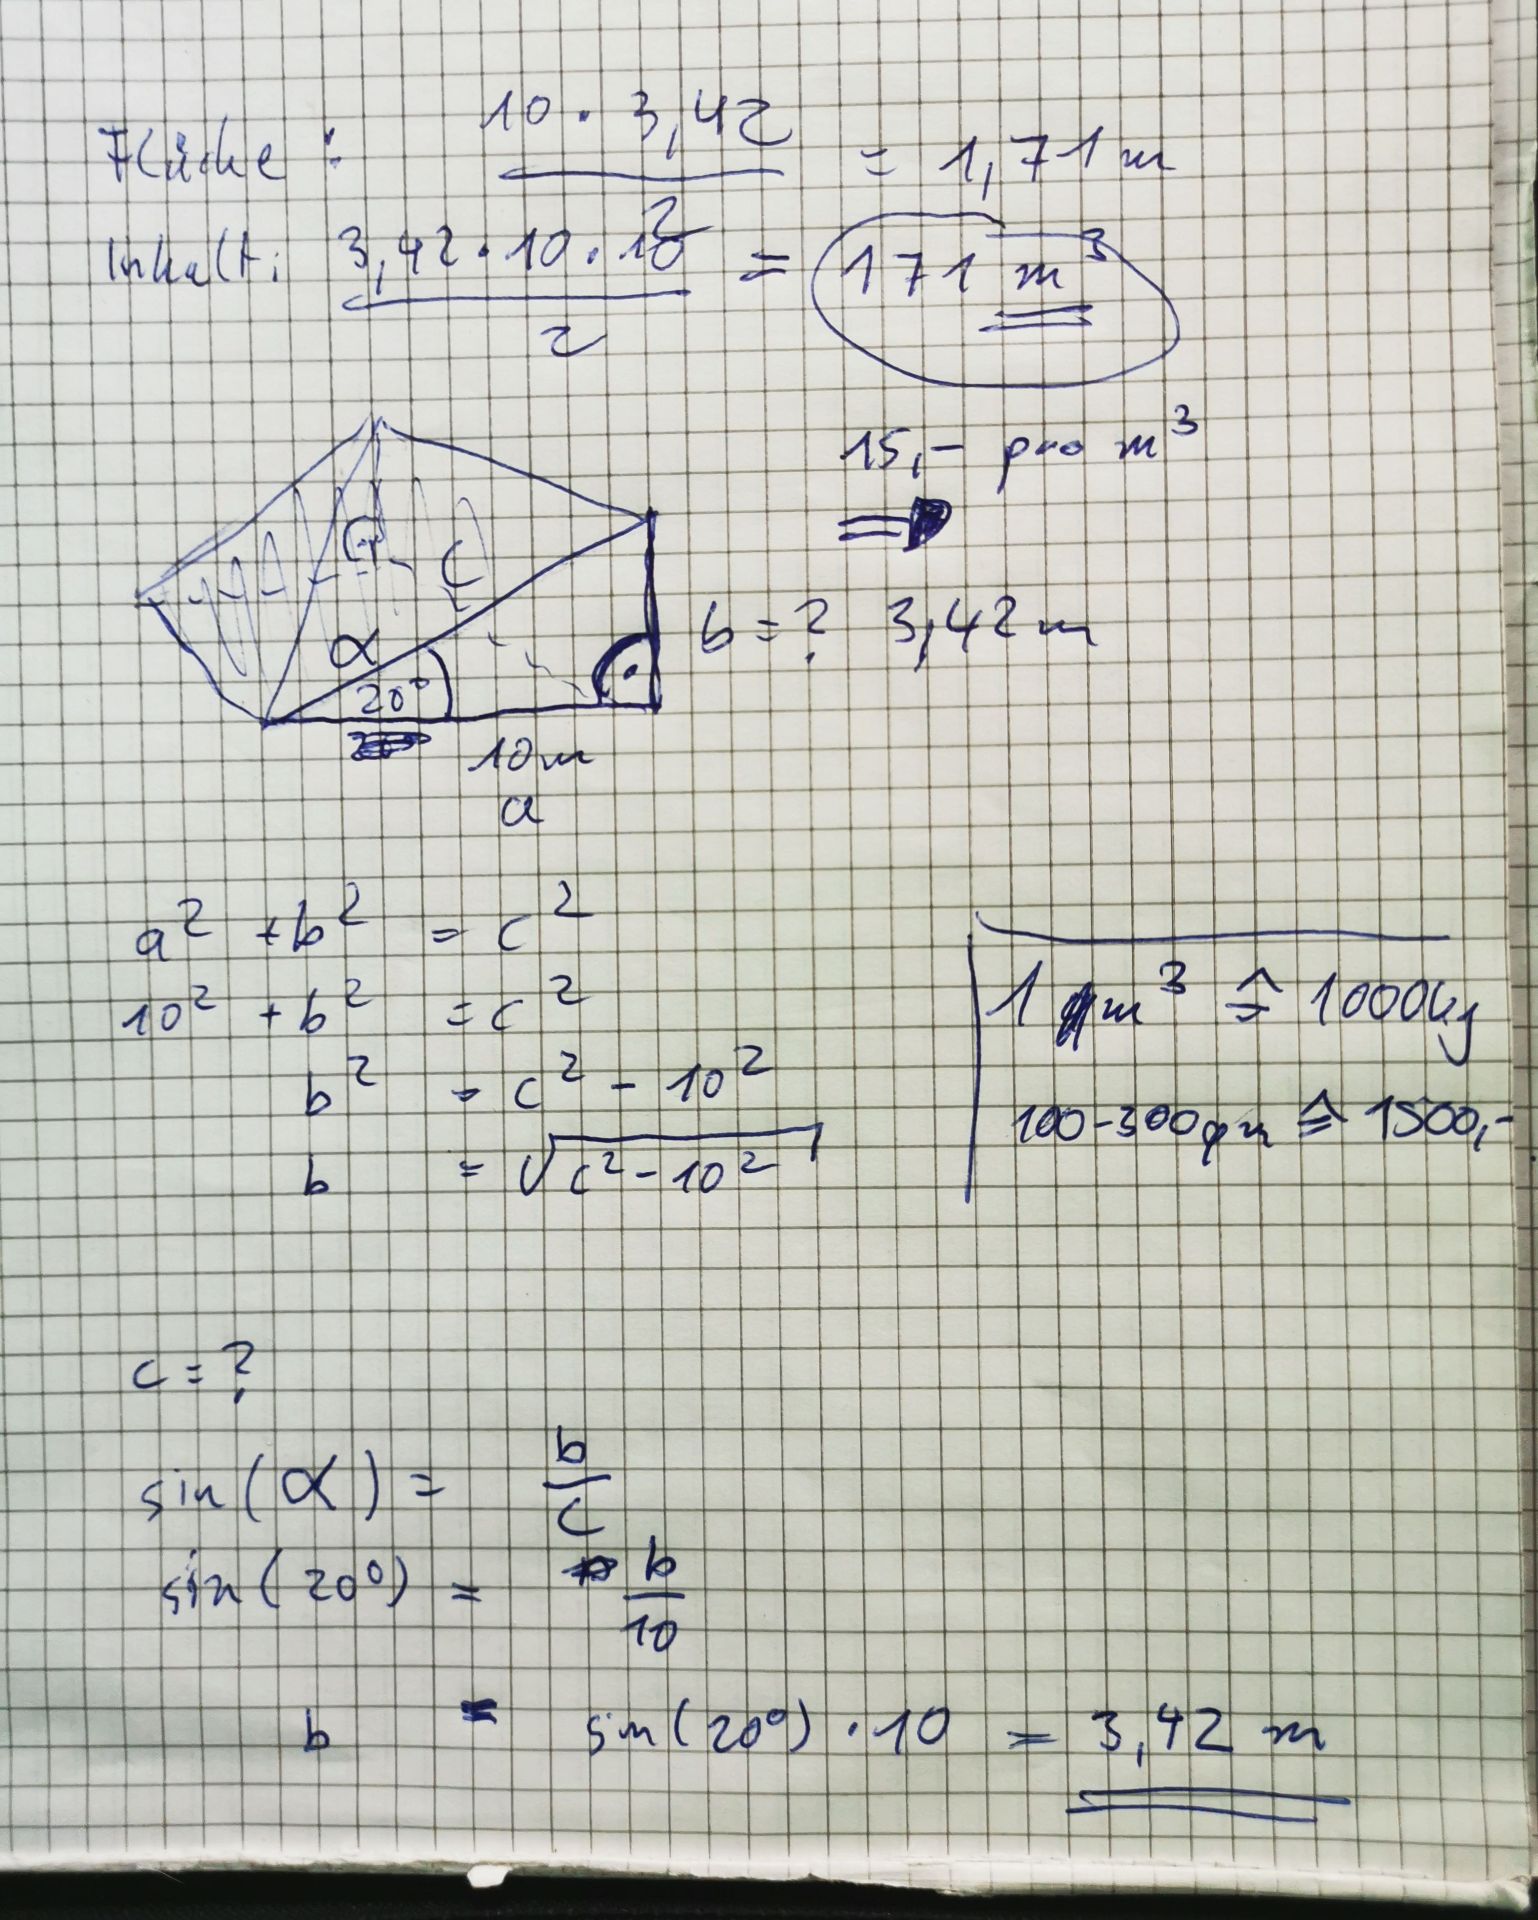 Fläche: 10 · 3,42 / 2 = 1,71 m
Inhalt: 3,42 · 10 · 10 / 2 = 171 m³
15,- pro m³
⇒
G
c
α
20°
b = ? 3,42 m
10 m
a
a² + b² = c²
10² + b² = c²
b² = c² - 10²
b = √(c² - 10²)
1 m³ ≙ 1000kg
100-300qm ≙ 1500,-
c = ?
sin(α) = b/c
sin(20°) = b/10
b = sin(20°) · 10 = 3,42 m